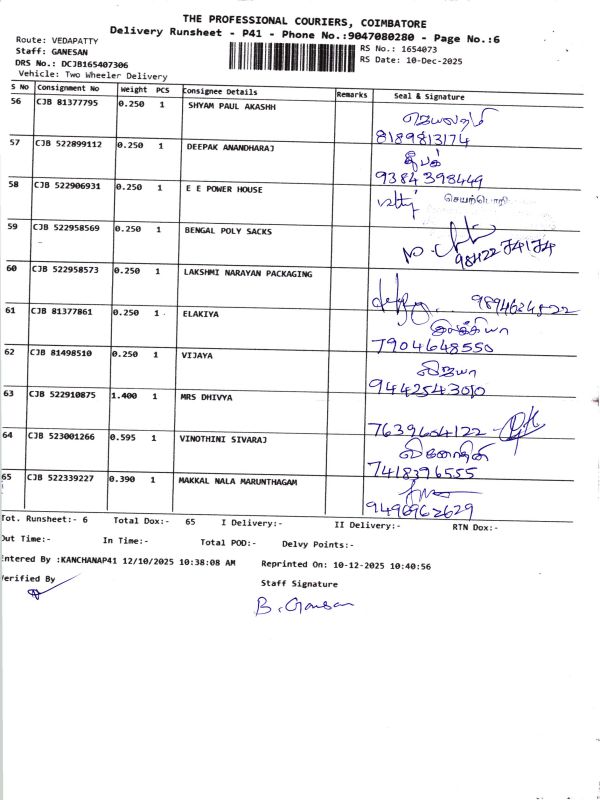 THE PROFESSIONAL COURIERS, COIMBATORE
Delivery Runsheet - P41 - Phone No.:9047080280 - Page No.:6
Route: VEDAPATTY
Staff: GANESAN
DRS No.: DCJB165407306
Vehicle: Two Wheeler Delivery
RS No.: 1654073
RS Date: 10-Dec-2025
S No Consignment No Weight PCS Consignee Details Remarks Seal & Signature
56 CJB 81377795 0.250 1 SHYAM PAUL AKASHH
8189813174
57 CJB 522899112 0.250 1 DEEPAK ANANDHARAJ தீபக்
9384398449
58 CJB 522906931 0.250 1 E E POWER HOUSE செயற்பொறி
59 CJB 522958569 0.250 1 BENGAL POLY SACKS
98422 74174
60 CJB 522958573 0.250 1 LAKSHMI NARAYAN PACKAGING
9894624522
61 CJB 81377861 0.250 1 ELAKIYA இலக்கியா
7904648550
62 CJB 81498510 0.250 1 VIJAYA விஜயா
63 CJB 522910875 1.400 1 MRS DHIVYA
7639604122
64 CJB 523001266 0.595 1 VINOTHINI SIVARAJ வினோதினி
7418396555
65 CJB 522339227 0.390 1 MAKKAL NALA MARUNTHAGAM
9496962629
Tot. Runsheet:- 6 Total Dox:- 65 I Delivery:- II Delivery:- RTN Dox:-
Out Time:- In Time:- Total POD:- Delvy Points:-
Entered By :KANCHANAP41 12/10/2025 10:38:08 AM Reprinted On: 10-12-2025 10:40:56
Verified By Staff Signature
B. Ganesan